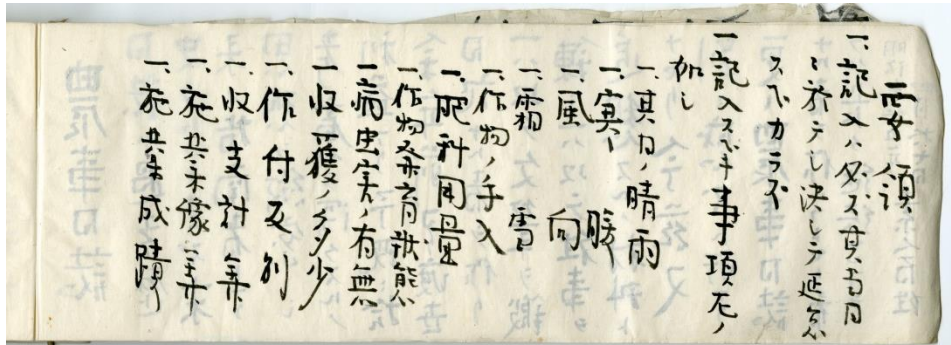 要領
一、記入ハ必ズ其当日
ニ於テシ決シテ延念
スベカラズ
一記入スベキ事項左ノ
如シ
一、其日ノ晴雨
一、寒暖
一、風向
一、霜雪
一、作物ノ手入
一、肥料用量
一、作物発育状態
一病虫害ノ有無
一収獲ノ多少
一、作付反別
一、収支計算
一、施業予算
一、施業成蹟